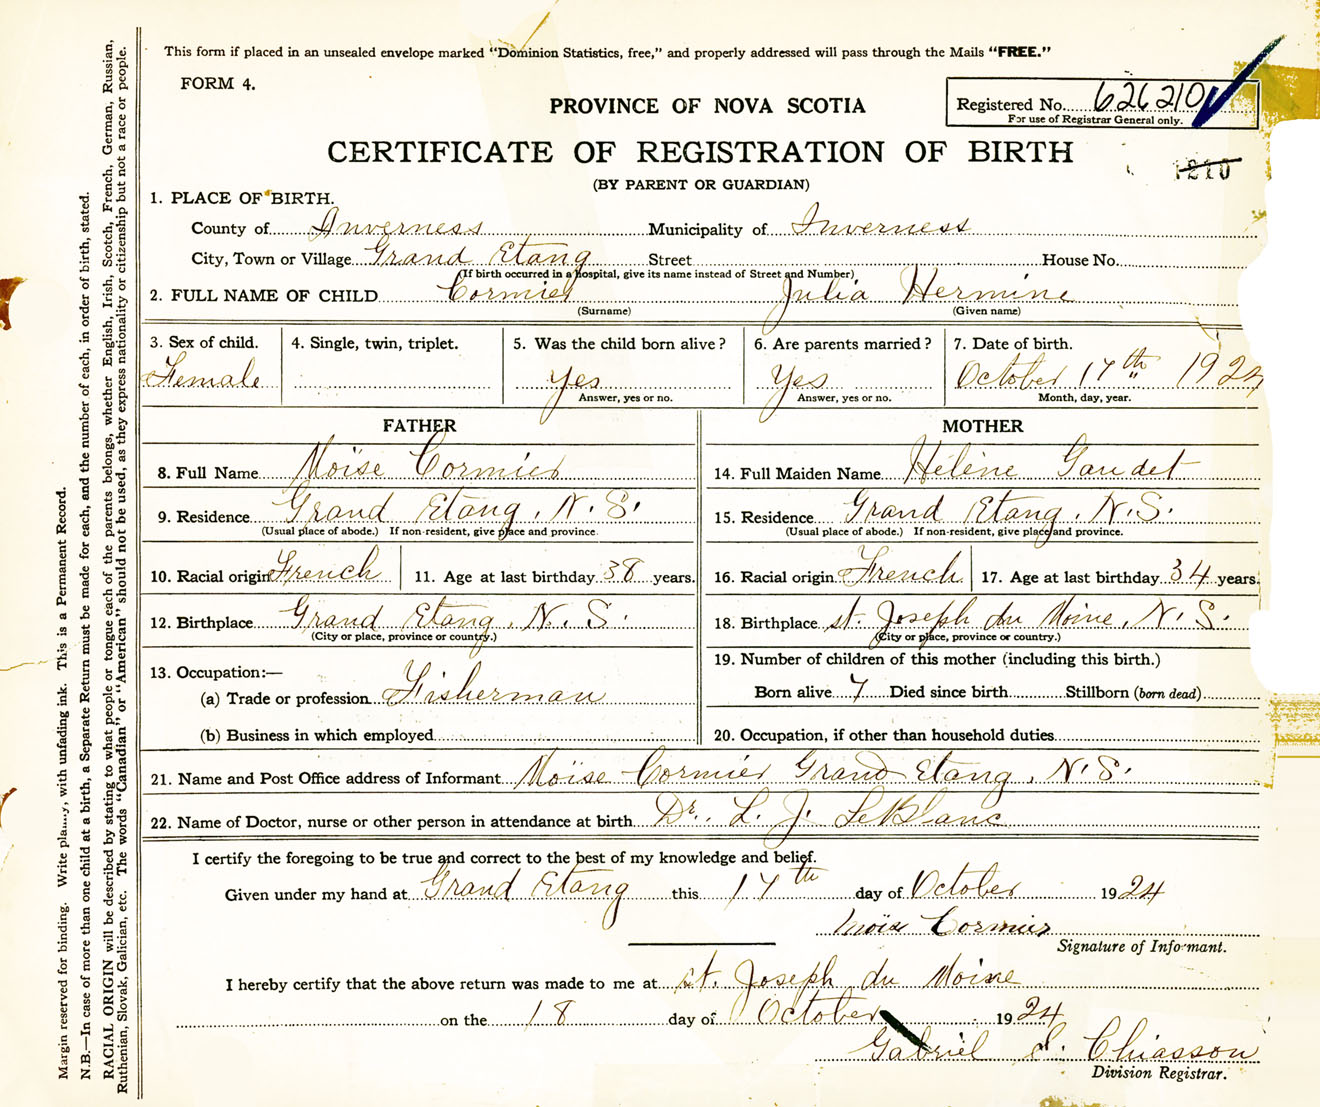 This form if placed in an unsealed envelope marked "Dominion Statistics, free," and properly addressed will pass through the Mails "FREE."
FORM 4.
PROVINCE OF NOVA SCOTIA
Registered No. 626210
For use of Registrar General only.
CERTIFICATE OF REGISTRATION OF BIRTH
1210
(BY PARENT OR GUARDIAN)
1. PLACE OF BIRTH.
County of Inverness Municipality of Inverness
City, Town or Village Grand Etang Street House No.
(If birth occurred in a hospital, give its name instead of Street and Number)
2. FULL NAME OF CHILD Cormier Julia Hermine
(Surname) (Given name)
3. Sex of child. 4. Single, twin, triplet. 5. Was the child born alive? 6. Are parents married? 7. Date of birth.
Female Yes Yes October 17th 1924
Answer, yes or no. Answer, yes or no. Month, day, year.
FATHER MOTHER
8. Full Name Moïse Cormier 14. Full Maiden Name Hélène Gaudet
9. Residence Grand Etang, N.S. 15. Residence Grand Etang, N.S.
(Usual place of abode.) If non-resident, give place and province. (Usual place of abode.) If non-resident, give place and province.
10. Racial origin French 11. Age at last birthday 38 years. 16. Racial origin French 17. Age at last birthday 34 years.
12. Birthplace Grand Etang, N.S. 18. Birthplace St. Joseph du Moine, N.S.
(City or place, province or country.) (City or place, province or country.)
13. Occupation:— 19. Number of children of this mother (including this birth.)
(a) Trade or profession Fisherman Born alive 7 Died since birth Stillborn (born dead)
(b) Business in which employed 20. Occupation, if other than household duties
21. Name and Post Office address of Informant Moïse Cormier Grand Etang, N.S.
22. Name of Doctor, nurse or other person in attendance at birth Dr. L. J. LeBlanc
I certify the foregoing to be true and correct to the best of my knowledge and belief.
Given under my hand at Grand Etang this 17th day of October 1924
Moïse Cormier
Signature of Informant.
I hereby certify that the above return was made to me at St. Joseph du Moine
on the 18 day of October 1924
Gabriel S. Chiasson
Division Registrar.
Margin reserved for binding. Write plainly, with unfading ink. This is a Permanent Record.
N.B.—In case of more than one child at a birth, a Separate Return must be made for each, and the number of each, in order of birth, stated.
RACIAL ORIGIN will be described by stating to what people or tongue each of the parents belongs, whether English, Irish, Scotch, French, German, Russian,
Ruthenian, Slovak, Galician, etc. The words "Canadian" or "American" should not be used, as they express nationality or citizenship but not a race or people.